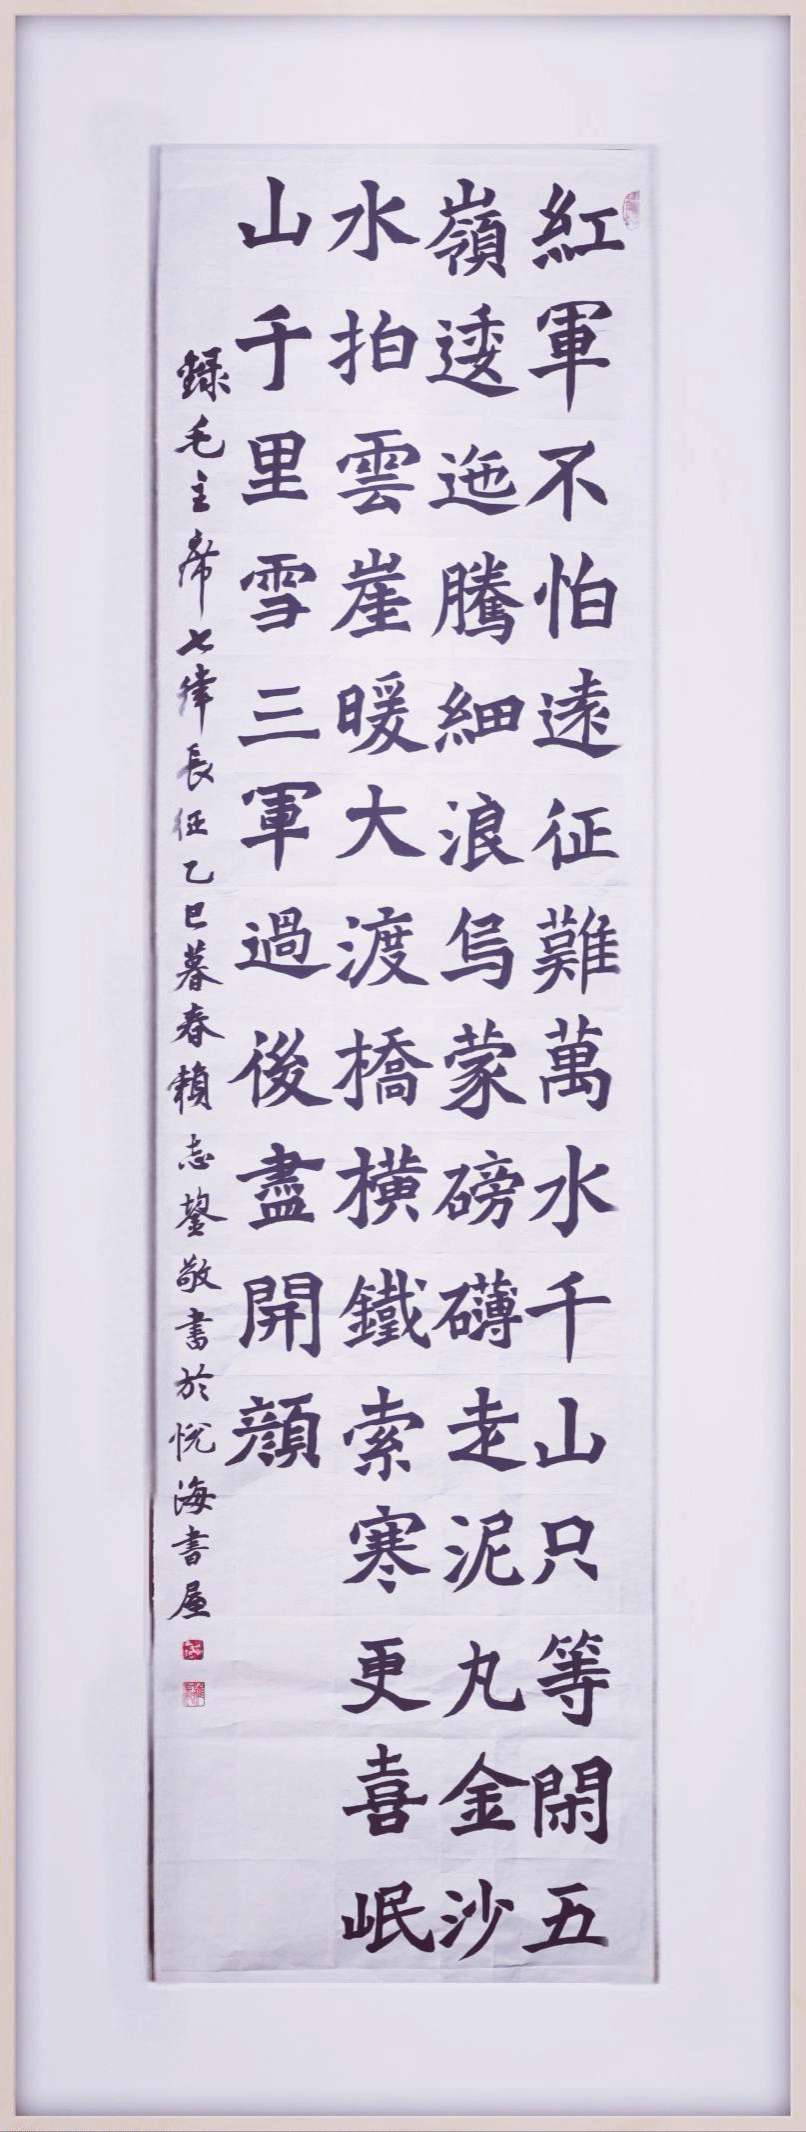 紅軍不怕遠征難萬水千山只等閑五
嶺逶迤騰細浪烏蒙磅礴走泥丸金沙
水拍雲崖暖大渡橋橫鐵索寒更喜岷
山千里雪三軍過後盡開顔
録毛主席七律長征乙巳暮春賴志鋆敬書於悅海書屋